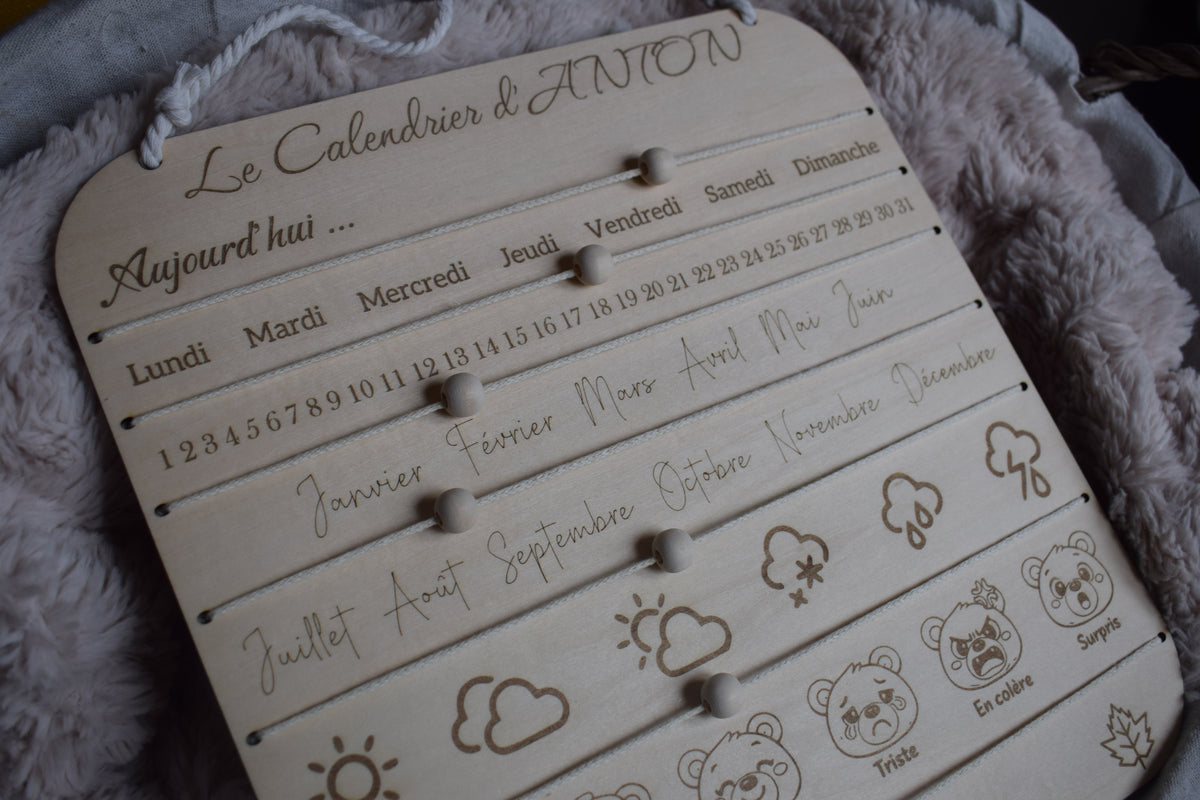 Le Calendrier d'ANTON
Aujourd'hui ...
Lundi Mardi Mercredi Jeudi Vendredi Samedi Dimanche
1 2 3 4 5 6 7 8 9 10 11 12 13 14 15 16 17 18 19 20 21 22 23 24 25 26 27 28 29 30 31
Janvier Février Mars Avril Mai Juin
Juillet Août Septembre Octobre Novembre Décembre
Triste En colère Surpris